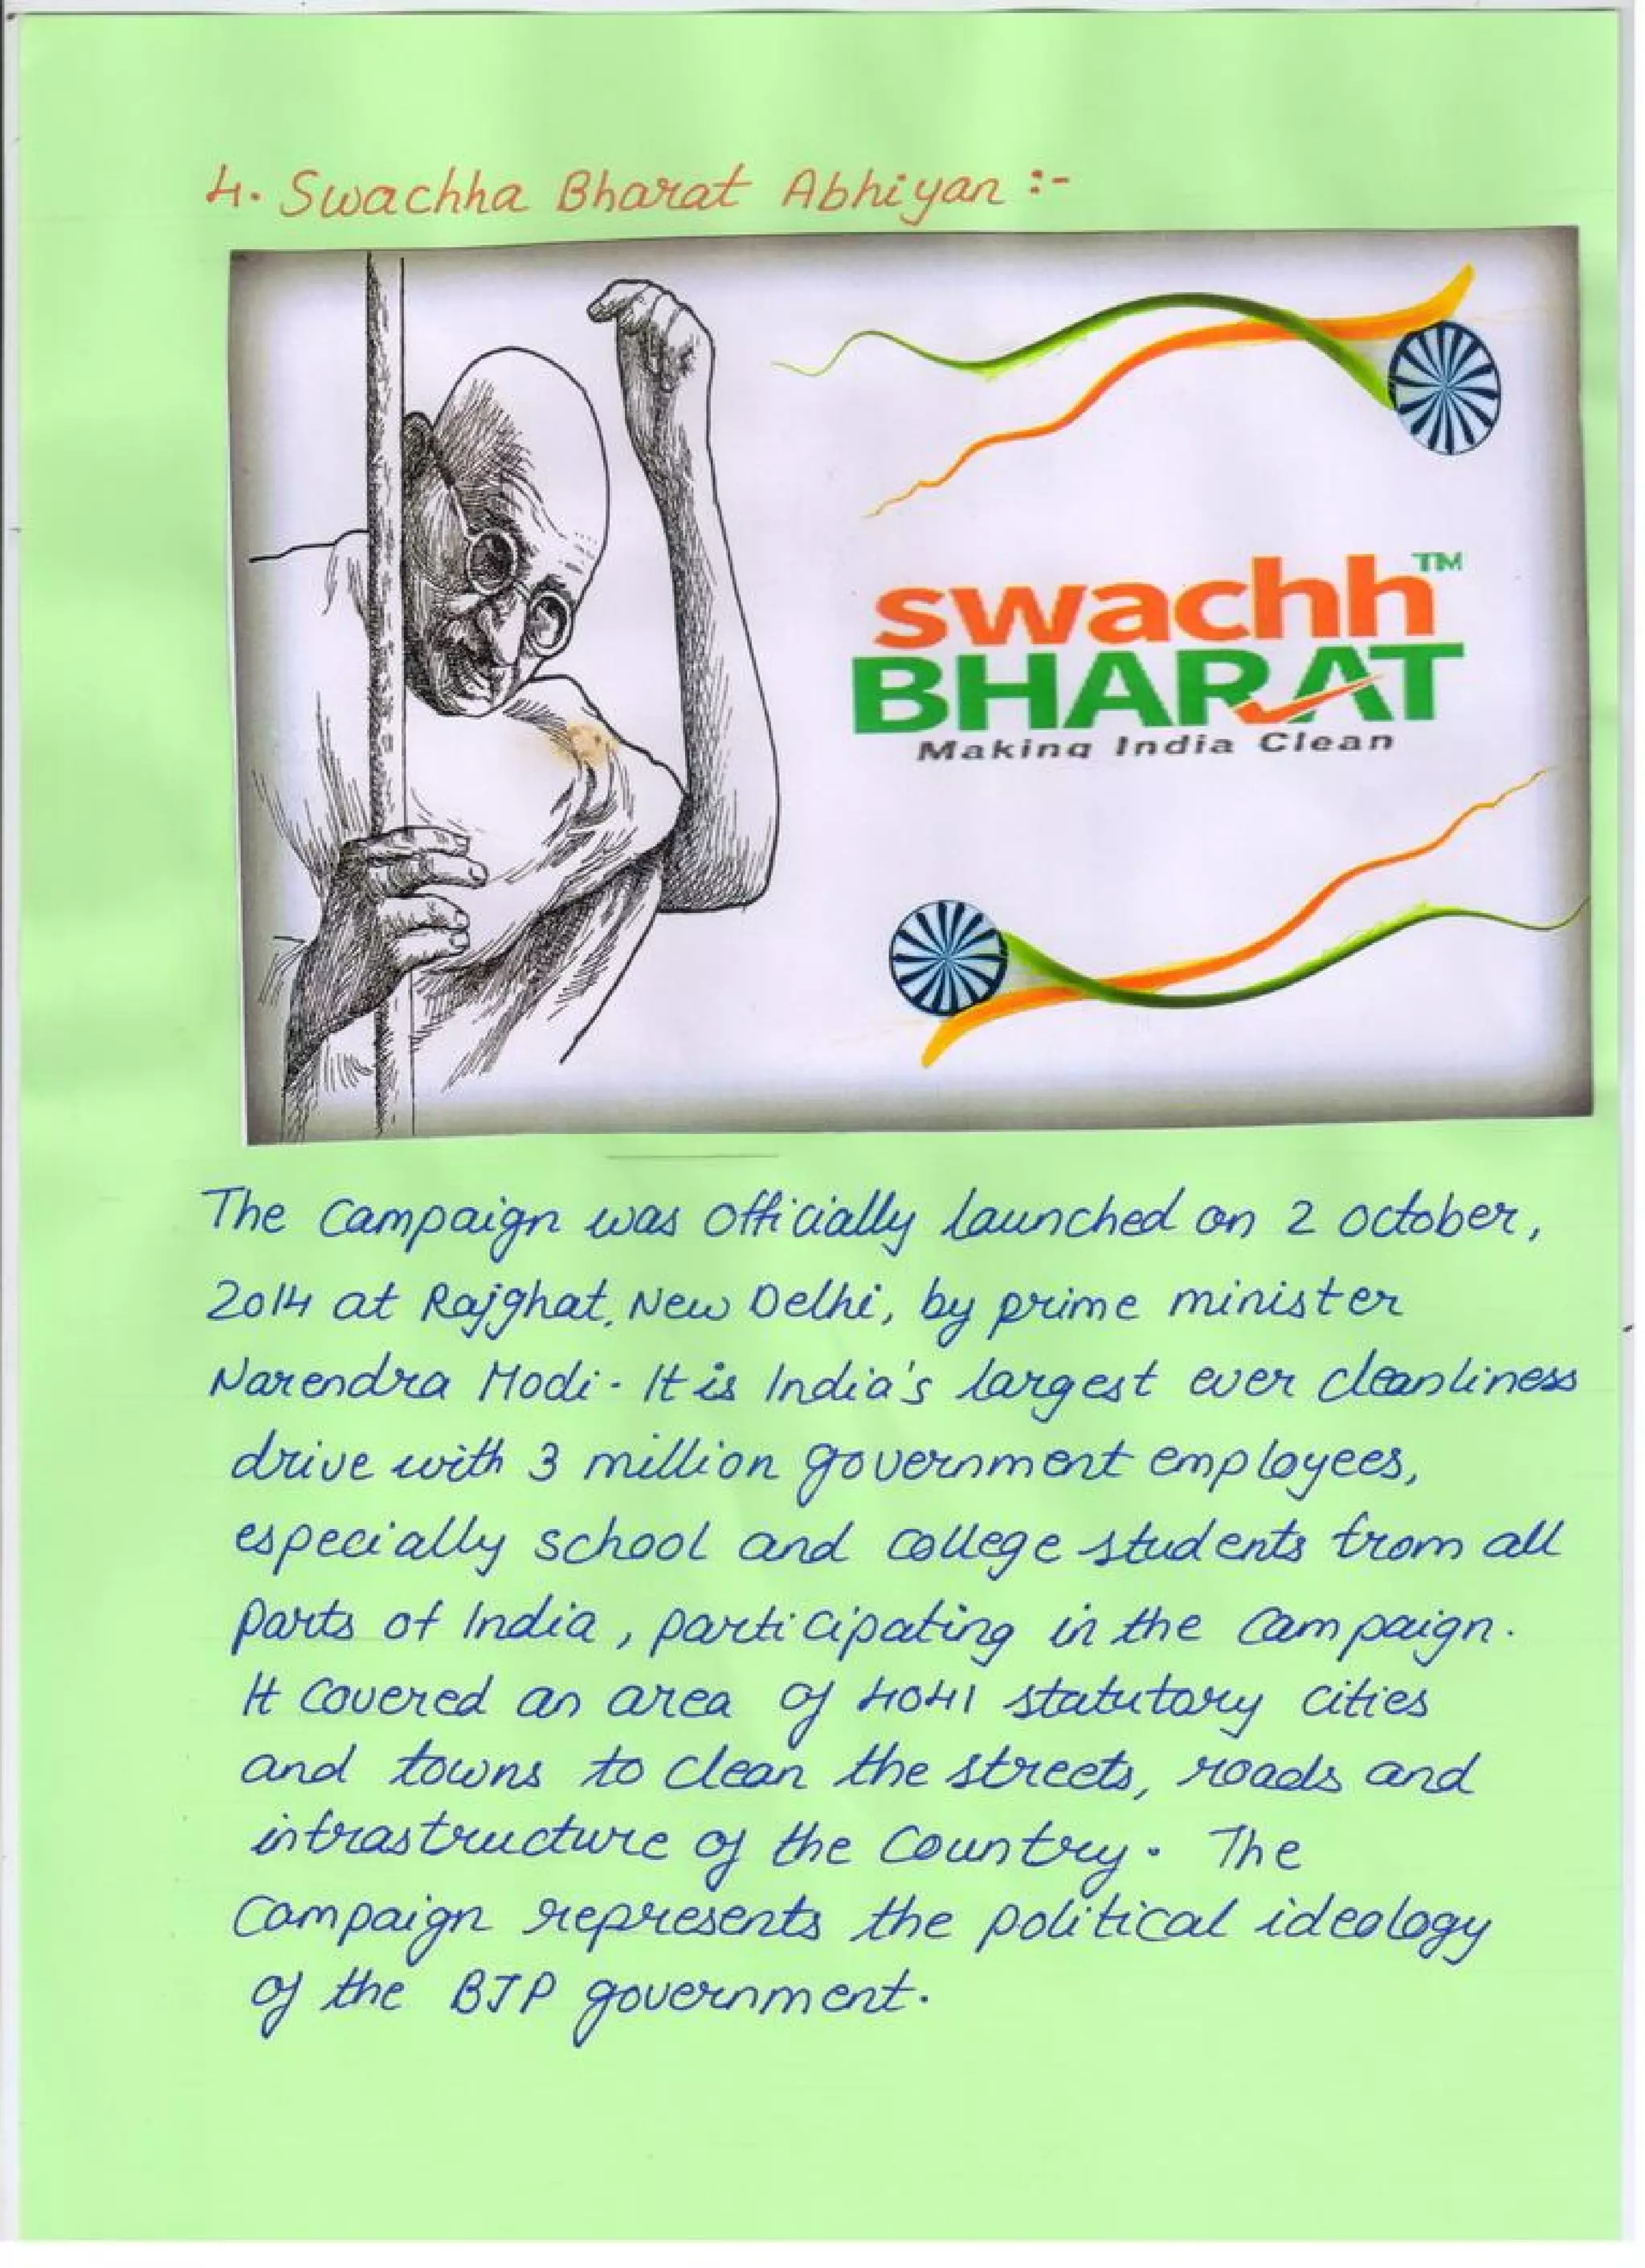 4. Swachha Bharat Abhiyan :-
swachh™
BHARAT
Making India Clean
The Campaign was officially launched on 2 october,
2014 at Rajghat, New Delhi, by prime minister
Narendra Modi. It is India's largest ever cleanliness
drive with 3 million government employees,
especially school and college students from all
parts of India, participating in the Campaign.
It Covered an area of 4041 statutory cities
and towns to clean the streets, roads and
infrastructure of the Country. The
Campaign represents the political ideology
of the BJP government.